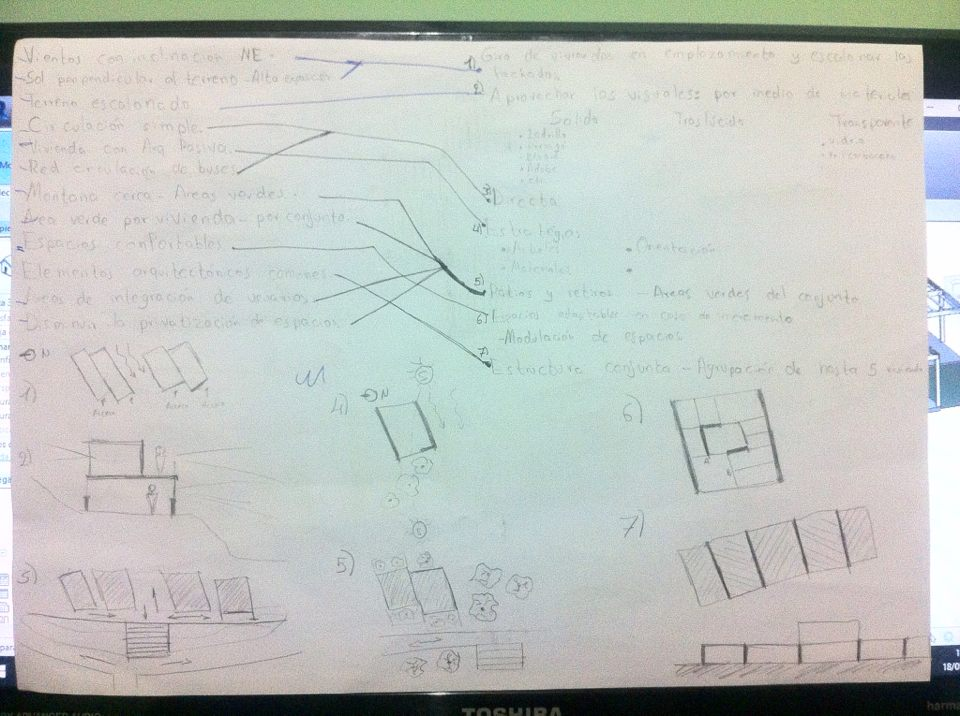 - Vientos con inclinación NE.
- Sol perpendicular al terreno. Alta exposición
- Terreno escalonado
- Circulación simple.
- Vivienda con Arq Pasiva.
- Red circulación de buses
- Montaña cerca - Areas verdes.
- Area verde por vivienda - por conjunto.
- Espacios confortables
- Elementos arquitectónicos comunes
- Areas de integración de usuarios
- Disminuir la privatización de espacios
1) Giro de viviendas en emplazamiento y escalonar las
fachadas
2) Aprovechar las visuales: por medio de materiales
Solido Traslúcido Transparente
• Ladrillo
• Vidrio
• Adobe
• Policarbonato
3) Directa
4) Estrategias
• Arboles • Orientación
• Materiales •
5) Patios y retiros - Areas verdes del conjunto
6) Espacios adaptables en caso de incremento
- Modulación de espacios
7) Estructura conjunta - Agrupación de hasta 5 viviendas
N
1)
2)
3)
4) N
5)
6)
7)
TOSHIBA
harma
18/0